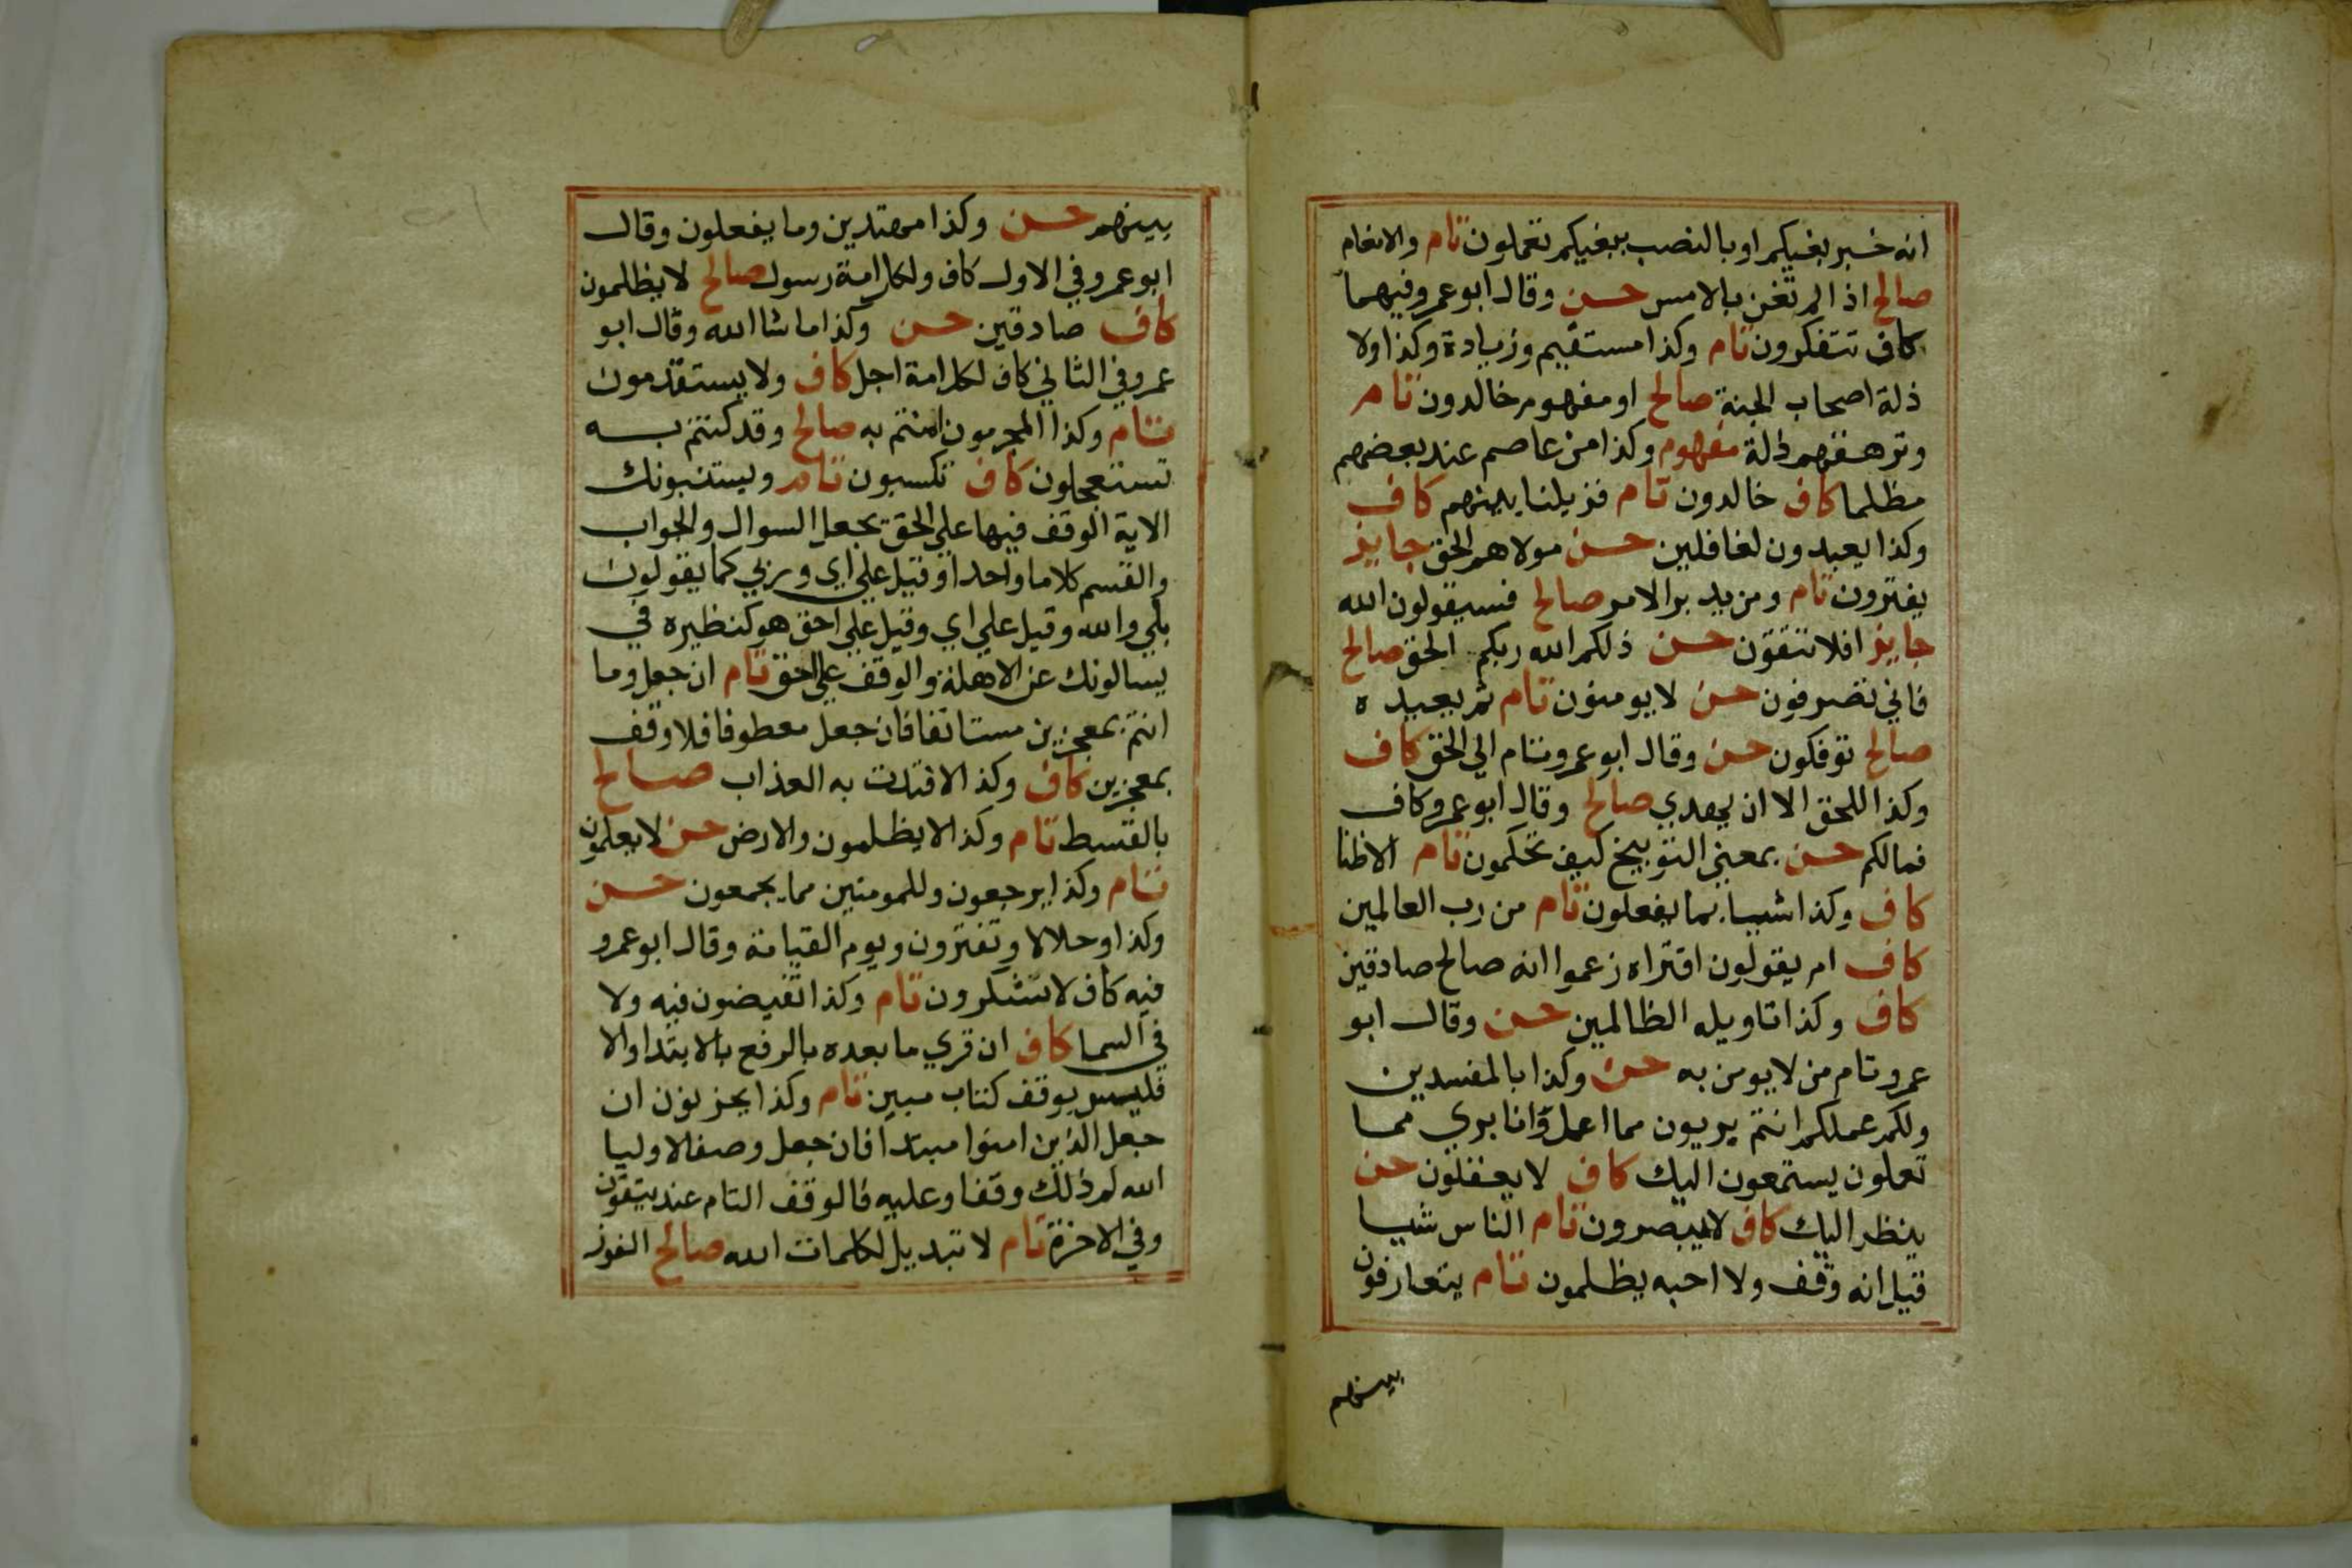 انه خبر بغيكم او بالنصب ببغيكم تعملون تام والانعام
صالح اذا لم تغن بالامس حسن وقال ابو عمرو فيهما
كاف تتفكرون تام وكذا مستقيم وزيادة وكذا ولا
ذلة اصحاب الجنة صالح او مفهوم خالدون تام
وترهقهم ذلة مفهوم وكذا من عاصم عند بعضهم
مظلما كاف خالدون تام فزيلنا بينهم كاف
وكذا يعبدون لغافلين حسن مولاهم الحق جايز
يفترون تام ومن يدبر الامر صالح فسيقولون الله
جايز افلا تتقون حسن ذلكم الله ربكم الحق صالح
فاني تصرفون حسن لا يومنون تام ثم يعيده
صالح توفكون حسن وقال ابو عمرو تام الي الحق كاف
وكذا للحق الا ان يهدي صالح وقال ابو عمرو كاف
فمالكم حسن بمعني التوبيخ كيف تحكمون تام الا ظنا
كاف وكذا شيا بما يفعلون تام من رب العالمين
كاف ام يقولون افتراه زعموا انه صالح صادقين
كاف وكذا تاويله الظالمين حسن وقال ابو
عمرو تام من لا يومن به حسن وكذا بالمفسدين
ولكم عملكم انتم بريون مما اعمل وانا بري مما
تعملون يستمعون اليك كاف لا يعقلون حسن
ينظر اليك كاف لا يبصرون تام الناس شيا
قيل انه وقف ولا احبه يظلمون تام يتعارفون
بينهم
بينهم حسن وكذا مهتدين وما يفعلون وقال
ابو عمرو في الاول كاف ولكل امة رسول صالح لا يظلمون
كاف صادقين حسن وكذا ما شا الله وقال ابو
عمرو في الثاني كاف لكل امة اجل كاف ولا يستقدمون
تام وكذا المجرمون امنتم به صالح وقد كنتم به
تستعجلون كاف تكسبون تام ويستنبونك
الاية الوقف فيها علي الحق بجعل السوال والجواب
والقسم كلاما واحدا وقيل علي اي وربي كما يقولون
بلي والله وقيل علي اي وقيل علي احق هو كنظيره في
يسالونك عن الاهلة والوقف علي الحق تام ان جعل وما
انتم بمعجزين مستانفا فان جعل معطوفا فلا وقف
بمعجزين كاف وكذا لافتدت به العذاب صالح
بالقسط تام وكذا لا يظلمون والارض حسن لا يعلمون
تام وكذا يرجعون وللمومنين مما يجمعون حسن
وكذا وحلالا وتفترون ويوم القيامة وقال ابو عمرو
فيه كاف لا تشكرون تام وكذا تفيضون فيه ولا
في السما كاف ان قري ما بعده بالرفع بالابتدا والا
فليس بوقف كتاب مبين تام وكذا يحزنون ان
جعل الذين امنوا مبتدا فان جعل وصفا لاوليا
الله لم ذلك وقفا وعليه فالوقف التام عند يتقون
وفي الاخرة تام لا تبديل لكلمات الله صالح الفوز